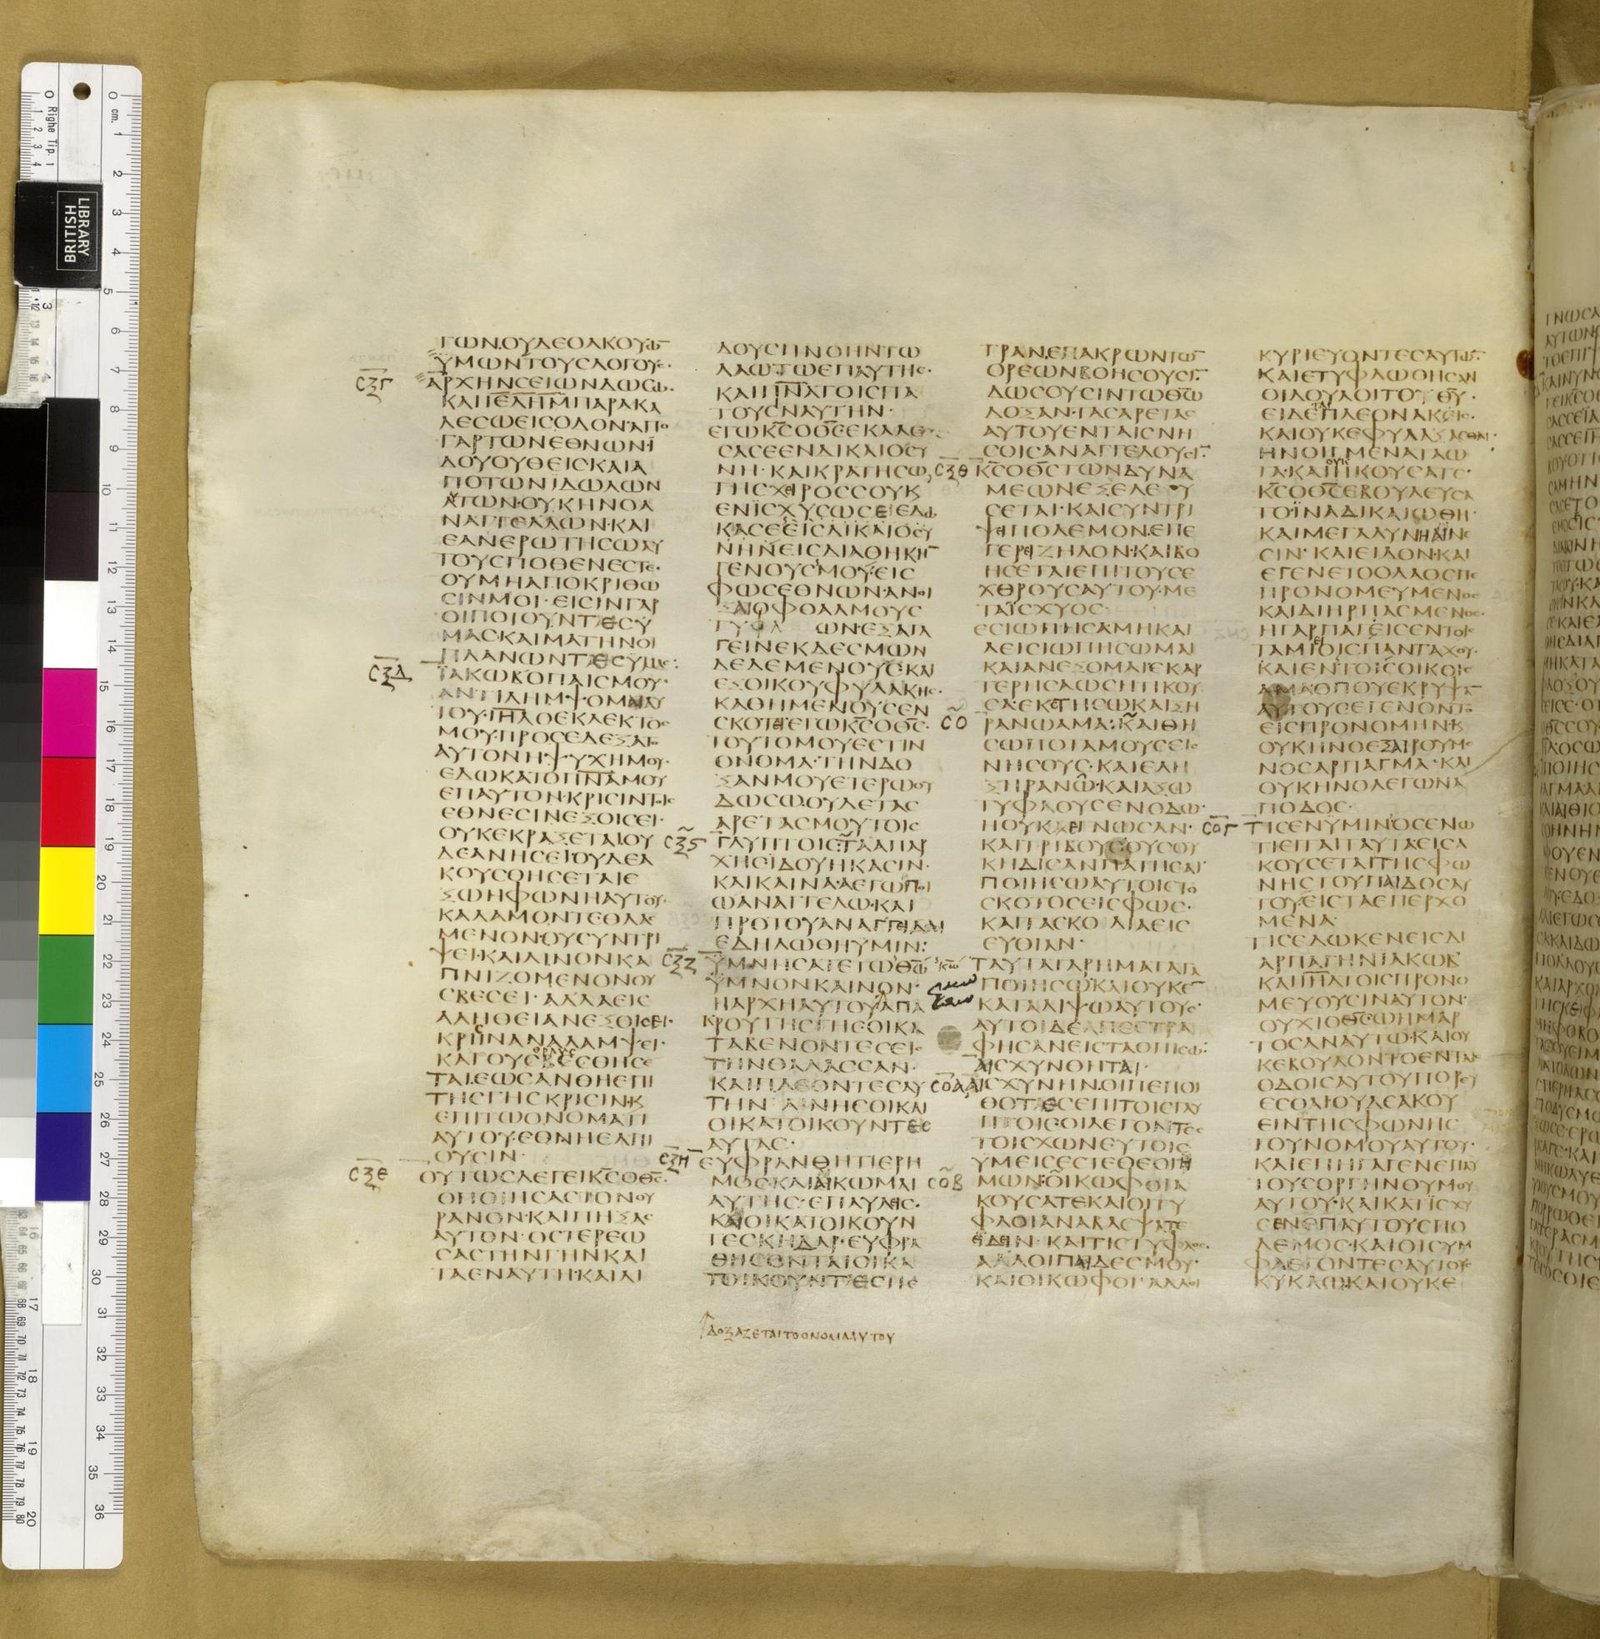 ΓΩΝ·ΟΥΔΕΟΑΚΟΥΩ̅
ΫΜΩΝΤΟΥϹΛΟΓΟΥϹ·
ϹΞΓ ΑΡΧΗΝϹΕΙΩΝΔΩϹΩ·
ΚΑΙΙΕΛΗΜΠΑΡΑΚΑ
ΛΕϹΩΕΙϹΟΔΟΝ·ΑΠΟ
ΓΑΡΤΩΝΕΘΝΩΝΪ
ΔΟΥΟΥΘΕΙϹΚΑΙΑ
ΠΟΤΩΝΙΔΩΛΩΝ
ΑΥΤΩΝ·ΟΥΚΗΝΟΑ
ΝΑΓΓΕΛΛΩΝ·ΚΑΙ
ΕΑΝΕΡΩΤΗϹΩΑΥ
ΤΟΥϹΠΟΘΕΝΕϹΤΕ·
ΟΥΜΗΑΠΟΚΡΙΘΩ
ϹΙΝΜΟΙ·ΕΙϹΙΝΓΑΡ
ΟΙΠΟΙΟΥΝΤΕϹΥ
ΜΑϹΚΑΙΜΑΤΗΝΟΙ
ΠΛΑΝΩΝΤΕϹΥΜΑϹ:
ϹΞΔ ΪΑΚΩΒΟΠΑΙϹΜΟΥ·
ΑΝΤΙΛΗΜΨΟΜΑΙΑΥ
ΤΟΥ·ΙΗΛΟΕΚΛΕΚΤΟϹ
ΜΟΥ·ΠΡΟϹΕΔΕΞΑΤΟ
ΑΥΤΟΝΗ·ΨΥΧΗΜΟΥ·
ΕΔΩΚΑΤΟΠΝΑΜΟΥ
ΕΠΑΥΤΟΝ·ΚΡΙϹΙΝΤΟΙϹ
ΕΘΝΕϹΙΝΕΞΟΙϹΕΙ·
ΟΥΚΕΚΡΑΞΕΤΑΙΟΥ
ΔΕΑΝΗϹΕΙΟΥΔΕΑ
ΚΟΥϹΘΗϹΕΤΑΙΕ
ΞΩΗΦΩΝΗΑΥΤΟΥ·
ΚΑΛΑΜΟΝΤΕΘΛΑϹ
ΜΕΝΟΝ·ΟΥϹΥΝΤΡΙ
ΨΕΙ·ΚΑΙΛΙΝΟΝΚΑ
ΠΝΙΖΟΜΕΝΟΝΟΥ
ϹΒΕϹΕΙ·ΑΛΛΑΕΙϹ
ΑΛΗΘΕΙΑΝΕΞΟΙϹΕΙ·
ΚΡΙϹΙΝΑΝΑΛΑΜΨΕΙ·
ΚΑΙΟΥϹΒΕϹΘΗϹΕ
ΤΑΙ·ΕΩϹΑΝΘΗΕΠΙ
ΤΗϹΓΗϹΚΡΙϹΙΝ·Κ
ΕΠΙΤΩΟΝΟΜΑΤΙ
ΑΥΤΟΥ·ΕΘΝΗΕΛΠΙ
ΟΥϹΙΝ·
ϹΞΕ ΟΥΤΩϹΛΕΓΕΙΚϹΟΘϹ·
ΟΠΟΙΗϹΑϹΤΟΝΟΥ
ΡΑΝΟΝ·ΚΑΙΠΗΞΑϹ
ΑΥΤΟΝ·ΟϹΤΕΡΕΩ
ϹΑϹΤΗΝΓΗΝΚΑΙ
ΤΑΕΝΑΥΤΗ·ΚΑΙΔΙ
ΔΟΥϹΠΝΟΗΝΤΩ
ΛΑΩΤΩΕΠΑΥΤΗϹ·
ΚΑΙΠΝΑΤΟΙϹΠΑ
ΤΟΥϹΝΑΥΤΗΝ·
ΕΓΩΚϹΟΘϹΕΚΑΛΕ
ϹΑϹΕΕΝΔΙΚΑΙΟϹΥ
ΝΗ·ΚΑΙΚΡΑΤΗϹΩ
ΤΗϹΧΕΙΡΟϹϹΟΥΚ
ΕΝΙϹΧΥϹΩϹΕ·ΕΔΩ
ΚΑϹΕΕΙϹΔΙΚΑΙΟϹΥ
ΝΗΝΕΙϹΔΙΑΘΗΚΗ̅
ΓΕΝΟΥϹΜΟΥ·ΕΙϹ
ΦΩϹΕΘΝΩΝ·ΑΝΟΙ
ΞΑΙΟΦΘΑΛΜΟΥϹ
ΤΥΦΛΩΝ·ΕΞΑΓΑ
ΓΕΙΝΕΚΔΕϹΜΩΝ
ΔΕΔΕΜΕΝΟΥϹ·ΚΑΙ
ΕΞΟΙΚΟΥΦΥΛΑΚΗϹ·
ΚΑΘΗΜΕΝΟΥϹΕΝ
ϹΚΟΤΕΙ·ΕΓΩΚϹΟΘϹ·
ΤΟΥΤΟΜΟΥΕϹΤΙΝ
ΟΝΟΜΑ·ΤΗΝΔΟ
ΞΑΝΜΟΥΕΤΕΡΩΟΥ
ΔΩϹΩ·ΟΥΔΕΤΑϹ
ΑΡΕΤΑϹΜΟΥΤΟΙϹ
ϹΞϚ ΓΛΥΠΤΟΙϹΤΑΑΠΑΡ
ΧΗϹΙΔΟΥΗΚΑϹΙΝ·
ΚΑΙΚΑΙΝΑ·ΑΕΓΩΠΟΙ
ΩΑΝΑΓΓΕΛΩ·ΚΑΙ
ΠΡΟΤΟΥΑΝΑΓΓΕΙΛΑΙ
ΕΔΗΛΩΘΗΥΜΙΝ:
ϹΞΖ ΫΜΝΗϹΑΤΕΤΩΘΩ
ΥΜΝΟΝΚΑΙΝΟΝ·
ΗΑΡΧΗΑΥΤΟΥΑΠΑ
ΚΡΟΥΤΗϹΓΗϹΟΙΚΑ
ΤΑΒΕΝΟΝΤΕϹΕΙϹ
ΤΗΝΘΑΛΑϹϹΑΝ·
ΚΑΙΠΛΕΟΝΤΕϹΑΥ
ΤΗΝΑΙΝΗϹΟΙΚΑΙ
ΟΙΚΑΤΟΙΚΟΥΝΤΕϹ
ΑΥΤΑϹ·
ϹΞΗ ΕΥΦΡΑΝΘΗΤΙΕΡΗ
ΜΟϹΚΑΙΑΙΚΩΜΑΙ
ΑΥΤΗϹ·ΕΠΑΥΛΕΙϹ·
ΚΑΙΟΙΚΑΤΟΙΚΟΥΝ
ΤΕϹΚΗΔΑΡ·ΕΥΦΡΑ
ΘΗϹΟΝΤΑΙΟΙΚΑ
ΤΟΙΚΟΥΝΤΕϹΠΕ
ΔΟΞΑΖΕΤΑΙΤΟΟΝΟΜΑΑΥΤΟΥ
ΤΡΑΝ·ΕΠΑΚΡΩΝΤΩ̅
ΟΡΕΩΝΒΟΗϹΟΥϹΙ̅·
ΔΩϹΟΥϹΙΝΤΩΘΩ
ΔΟΞΑΝ·ΤΑϹΑΡΕΤΑϹ
ΑΥΤΟΥΕΝΤΑΙϹΝΗ
ϹΟΙϹΑΝΑΓΓΕΛΟΥϹΙ̅·
ϹΞΘ ΚϹΟΘϹΤΩΝΔΥΝΑ
ΜΕΩΝΕΞΕΛΕΥ
ϹΕΤΑΙ·ΚΑΙϹΥΝΤΡΙ
ΨΕΙΠΟΛΕΜΟΝ·ΕΠΕ
ΓΕΡΕΙΖΗΛΟΝ·ΚΑΙΒΟ
ΗϹΕΤΑΙΕΠΙΤΟΥϹΕ
ΧΘΡΟΥϹΑΥΤΟΥ·ΜΕ
ΤΑΙϹΧΥΟϹ
ΕϹΙΩΠΗϹΑΜΗΚΑΙ
ΑΕΙϹΙΩΠΗϹΩΜΑΙ
ΚΑΙΑΝΕΞΟΜΑΙ·ΕΚΑΡ
ΤΕΡΗϹΑΩϹΗΤΙΚΟΥ
ϹΑ·ΕΚϹΤΗϹΩΚΑΙΞΗ
ϹΟ ΡΑΝΩΑΜΑ·ΚΑΙΘΗ
ϹΩΠΟΤΑΜΟΥϹΕΙϹ
ΝΗϹΟΥϹ·ΚΑΙΕΛΗ
ΞΗΡΑΝΩ·ΚΑΙΑΞΩ
ΤΥΦΛΟΥϹΕΝΟΔΩ·
ΗΟΥΚΕΓΝΩϹΑΝ·
ΚΑΙΤΡΙΒΟΥϹΟΥϹΟΥ
ΚΗΔΙϹΑΝΠΑΤΗϹΑΙ
ΠΟΙΗϹΩΑΥΤΟΙϹΤΟ
ϹΚΟΤΟϹΕΙϹΦΩϹ·
ΚΑΙΤΑϹΚΟΛΙΑΕΙϹ
ΕΥΘΙΑΝ·
ΤΑΥΤΑΓΑΡΗΜΑΤΑΤΑ
ΠΟΙΗϹΩΚΑΙΟΥΚΕ̅
ΚΑΤΑΛΙΨΩΑΥΤΟΥϹ·
ΑΥΤΟΙΔΕΑΠΕϹΤΡΑ
ΦΗϹΑΝΕΙϹΤΑΟΠΙϹΩ:
ΑΙϹΧΥΝΘΗΤΑΙ·
ϹΟΑ ΑΙϹΧΥΝΗΝ·ΟΙΠΕΠΟΙ
ΘΟΤΕϹΕΠΙΤΟΙϹΓΛΥ
ΠΤΟΙϹ·ΟΙΛΕΓΟΝΤΕϹ
ΤΟΙϹΧΩΝΕΥΤΟΙϹ
ΥΜΕΙϹΕϹΤΕΘΕΟΙΗ
ϹΟΒ ΜΩΝ·ΟΙΚΩΦΟΙΑ
ΚΟΥϹΑΤΕΚΑΙΟΙΤΥ
ΦΛΟΙΑΝΑΒΛΕΨΑΤΕ
ΕΙΔΕΙΝ·ΚΑΙΤΙϹΤΥΦΛΟϹ·
ΑΛΛΟΙΠΑΙΔΕϹΜΟΥ·
ΚΑΙΟΙΚΩΦΟΙ·ΑΛΛΟΙ
ΚΥΡΙΕΥΟΝΤΕϹΑΥΤΩ̅·
ΚΑΙΕΤΥΦΛΩΘΗϹΑΝ
ΟΙΔΟΥΛΟΙΤΟΥΘΥ·
ΕΙΔΕΠΛΕΟΝΑΚΕΙϹ·
ΚΑΙΟΥΚΕΦΥΛΑΞΑϹΘΑΙ·
ΗΝΟΙΓΜΕΝΑΤΑΩ
ΤΑ·ΚΑΙΟΥΚΗΚΟΥϹΑΤΕ·
ΚϹΟΘϹΕΒΟΥΛΕΥϹΑ
ΤΟΪΝΑΔΙΚΑΙΩΘΗ·
ΚΑΙΜΕΓΑΛΥΝΗΑΙΝΕ
ϹΙΝ·ΚΑΙΕΙΔΟΝ·ΚΑΙ
ΕΓΕΝΕΤΟΟΛΑΟϹΠΕ
ΠΡΟΝΟΜΕΥΜΕΝΟϹ
ΚΑΙΔΙΗΡΠΑϹΜΕΝΟϹ·
ΗΓΑΡΠΑΓΕΙϹΕΝΤΟΙϹ
ΤΑΜΙΟΙϹΠΑΝΤΑΧΟΥ·
ΚΑΙΕΝΤΟΙϹΟΙΚΟΙϹ
ΑΜΑΟΠΟΥΕΚΡΥΨΑ̅
ΑΥΤΟΥϹΕΓΕΝΟΝΤΟ
ΕΙϹΠΡΟΝΟΜΗΝ·Κ
ΟΥΚΗΝΟΕΞΑΙΡΟΥΜΕ
ΝΟϹΑΡΠΑΓΜΑ·ΚΑΙ
ΟΥΚΗΝΟΛΕΓΩΝΑ
ΠΟΔΟϹ·
ϹΟΓ ΤΙϹΕΝΥΜΙΝΟϹΕΝΩ
ΤΙΕΙΤΑΙΤΑΥΤΑΕΙϹΑ
ΚΟΥϹΕΤΑΙΤΗϹΦΩ
ΝΗϹΤΟΥΠΑΙΔΟϹΑΥ
ΤΟΥΕΙϹΤΑΕΠΕΡΧΟ
ΜΕΝΑ·
ΤΙϹΕΔΩΚΕΝΕΙϹΔΙ
ΑΡΠΑΓΗΝΙΑΚΩΒ
ΚΑΙΙΗΛΤΟΙϹΠΡΟΝΟ
ΜΕΥΟΥϹΙΝΑΥΤΟΝ·
ΟΥΧΙΟΘϹΩΗΜΑΡ
ΤΟϹΑΝΑΥΤΩ·ΚΑΙΟΥ
ΚΕΒΟΥΛΟΝΤΟΕΝΤΑΙϹ
ΟΔΟΙϹΑΥΤΟΥΠΟΡΕΥ
ΕϹΘΑΙΟΥΔΕΑΚΟΥ
ΕΙΝΤΗϹΦΩΝΗϹ
ΤΟΥΝΟΜΟΥΑΥΤΟΥ·
ΚΑΙΕΠΗΓΑΓΕΝΕΠΑΥ
ΤΟΥϹΟΡΓΗΝΘΥΜΟΥ
ΑΥΤΟΥ·ΚΑΙΚΑΤΙϹΧΥ
ϹΕΝΕΠΑΥΤΟΥϹΠΟ
ΛΕΜΟϹ·ΚΑΙΟΙϹΥΜ
ΦΛΕΓΟΝΤΕϹΑΥΤΟΥϹ
ΚΥΚΛΩ·ΚΑΙΟΥΚΕ
BRITISH
LIBRARY